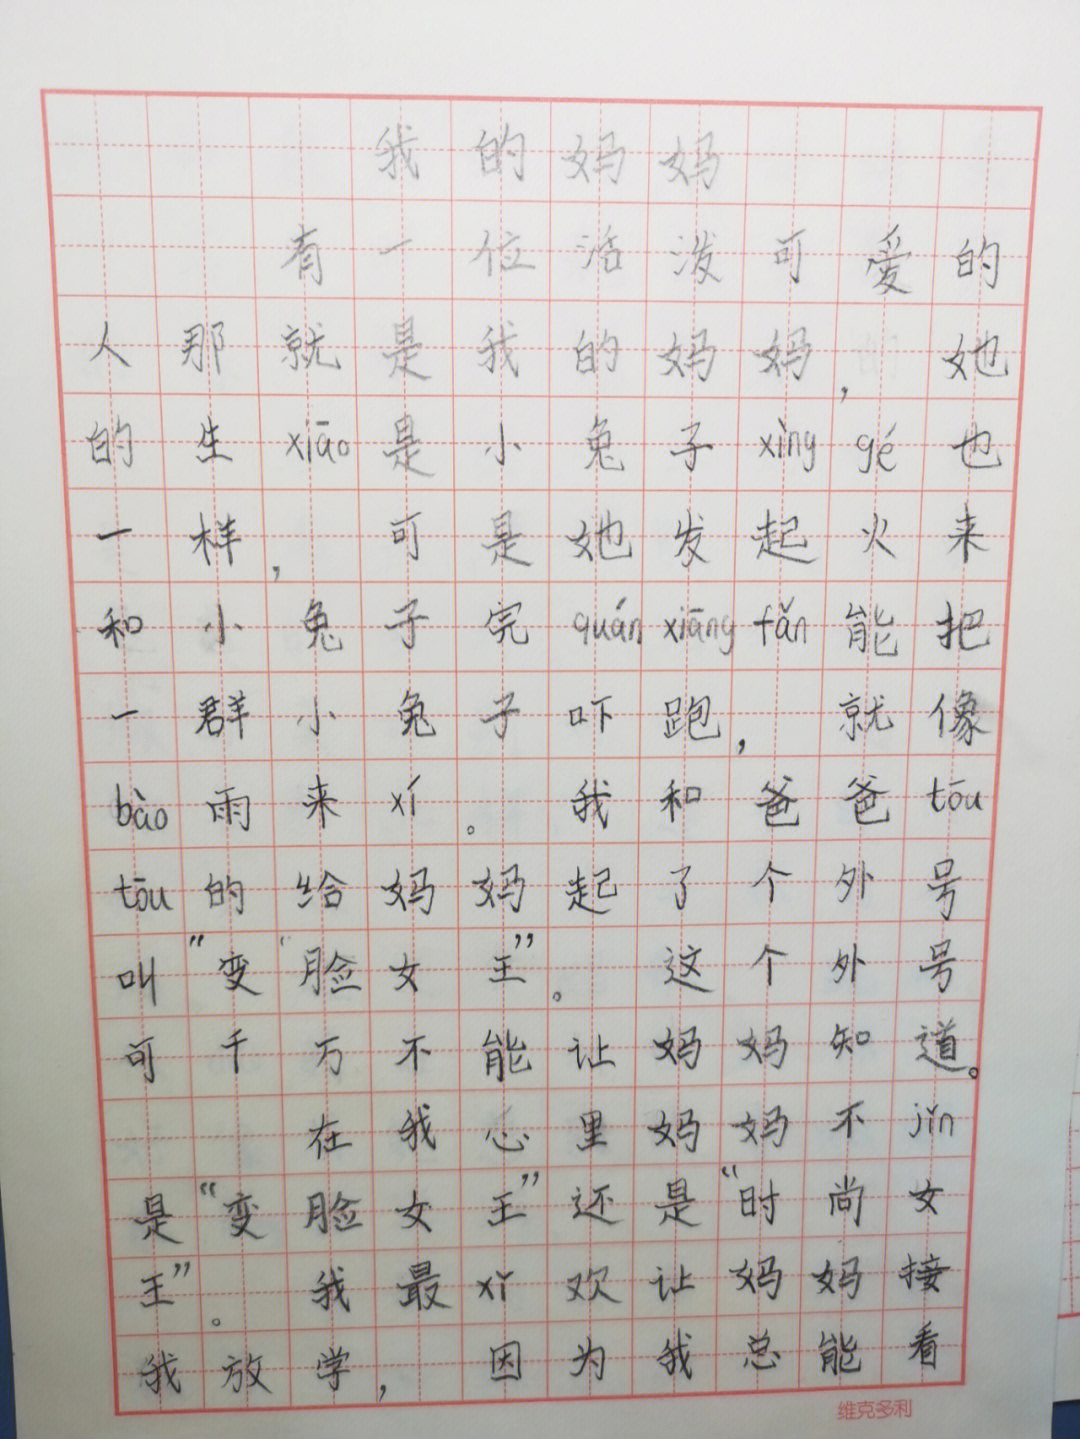 我的妈妈
有一位活泼可爱的
人那就是我的妈妈，她
的生xiāo是小兔子xìng gé也
一样，可是她发起火来
和小兔子完quán xiāng fǎn能把
一群小兔子吓跑，就像
bào雨来xí。我和爸爸tōu
tōu的给妈妈起了个外号
叫“变脸女王”。这个外号
可千万不能让妈妈知道。
在我心里妈妈不jǐn
是“变脸女王”还是“时尚女
王”。我最xǐ欢让妈妈接
我放学，因为我总能看
维克多利